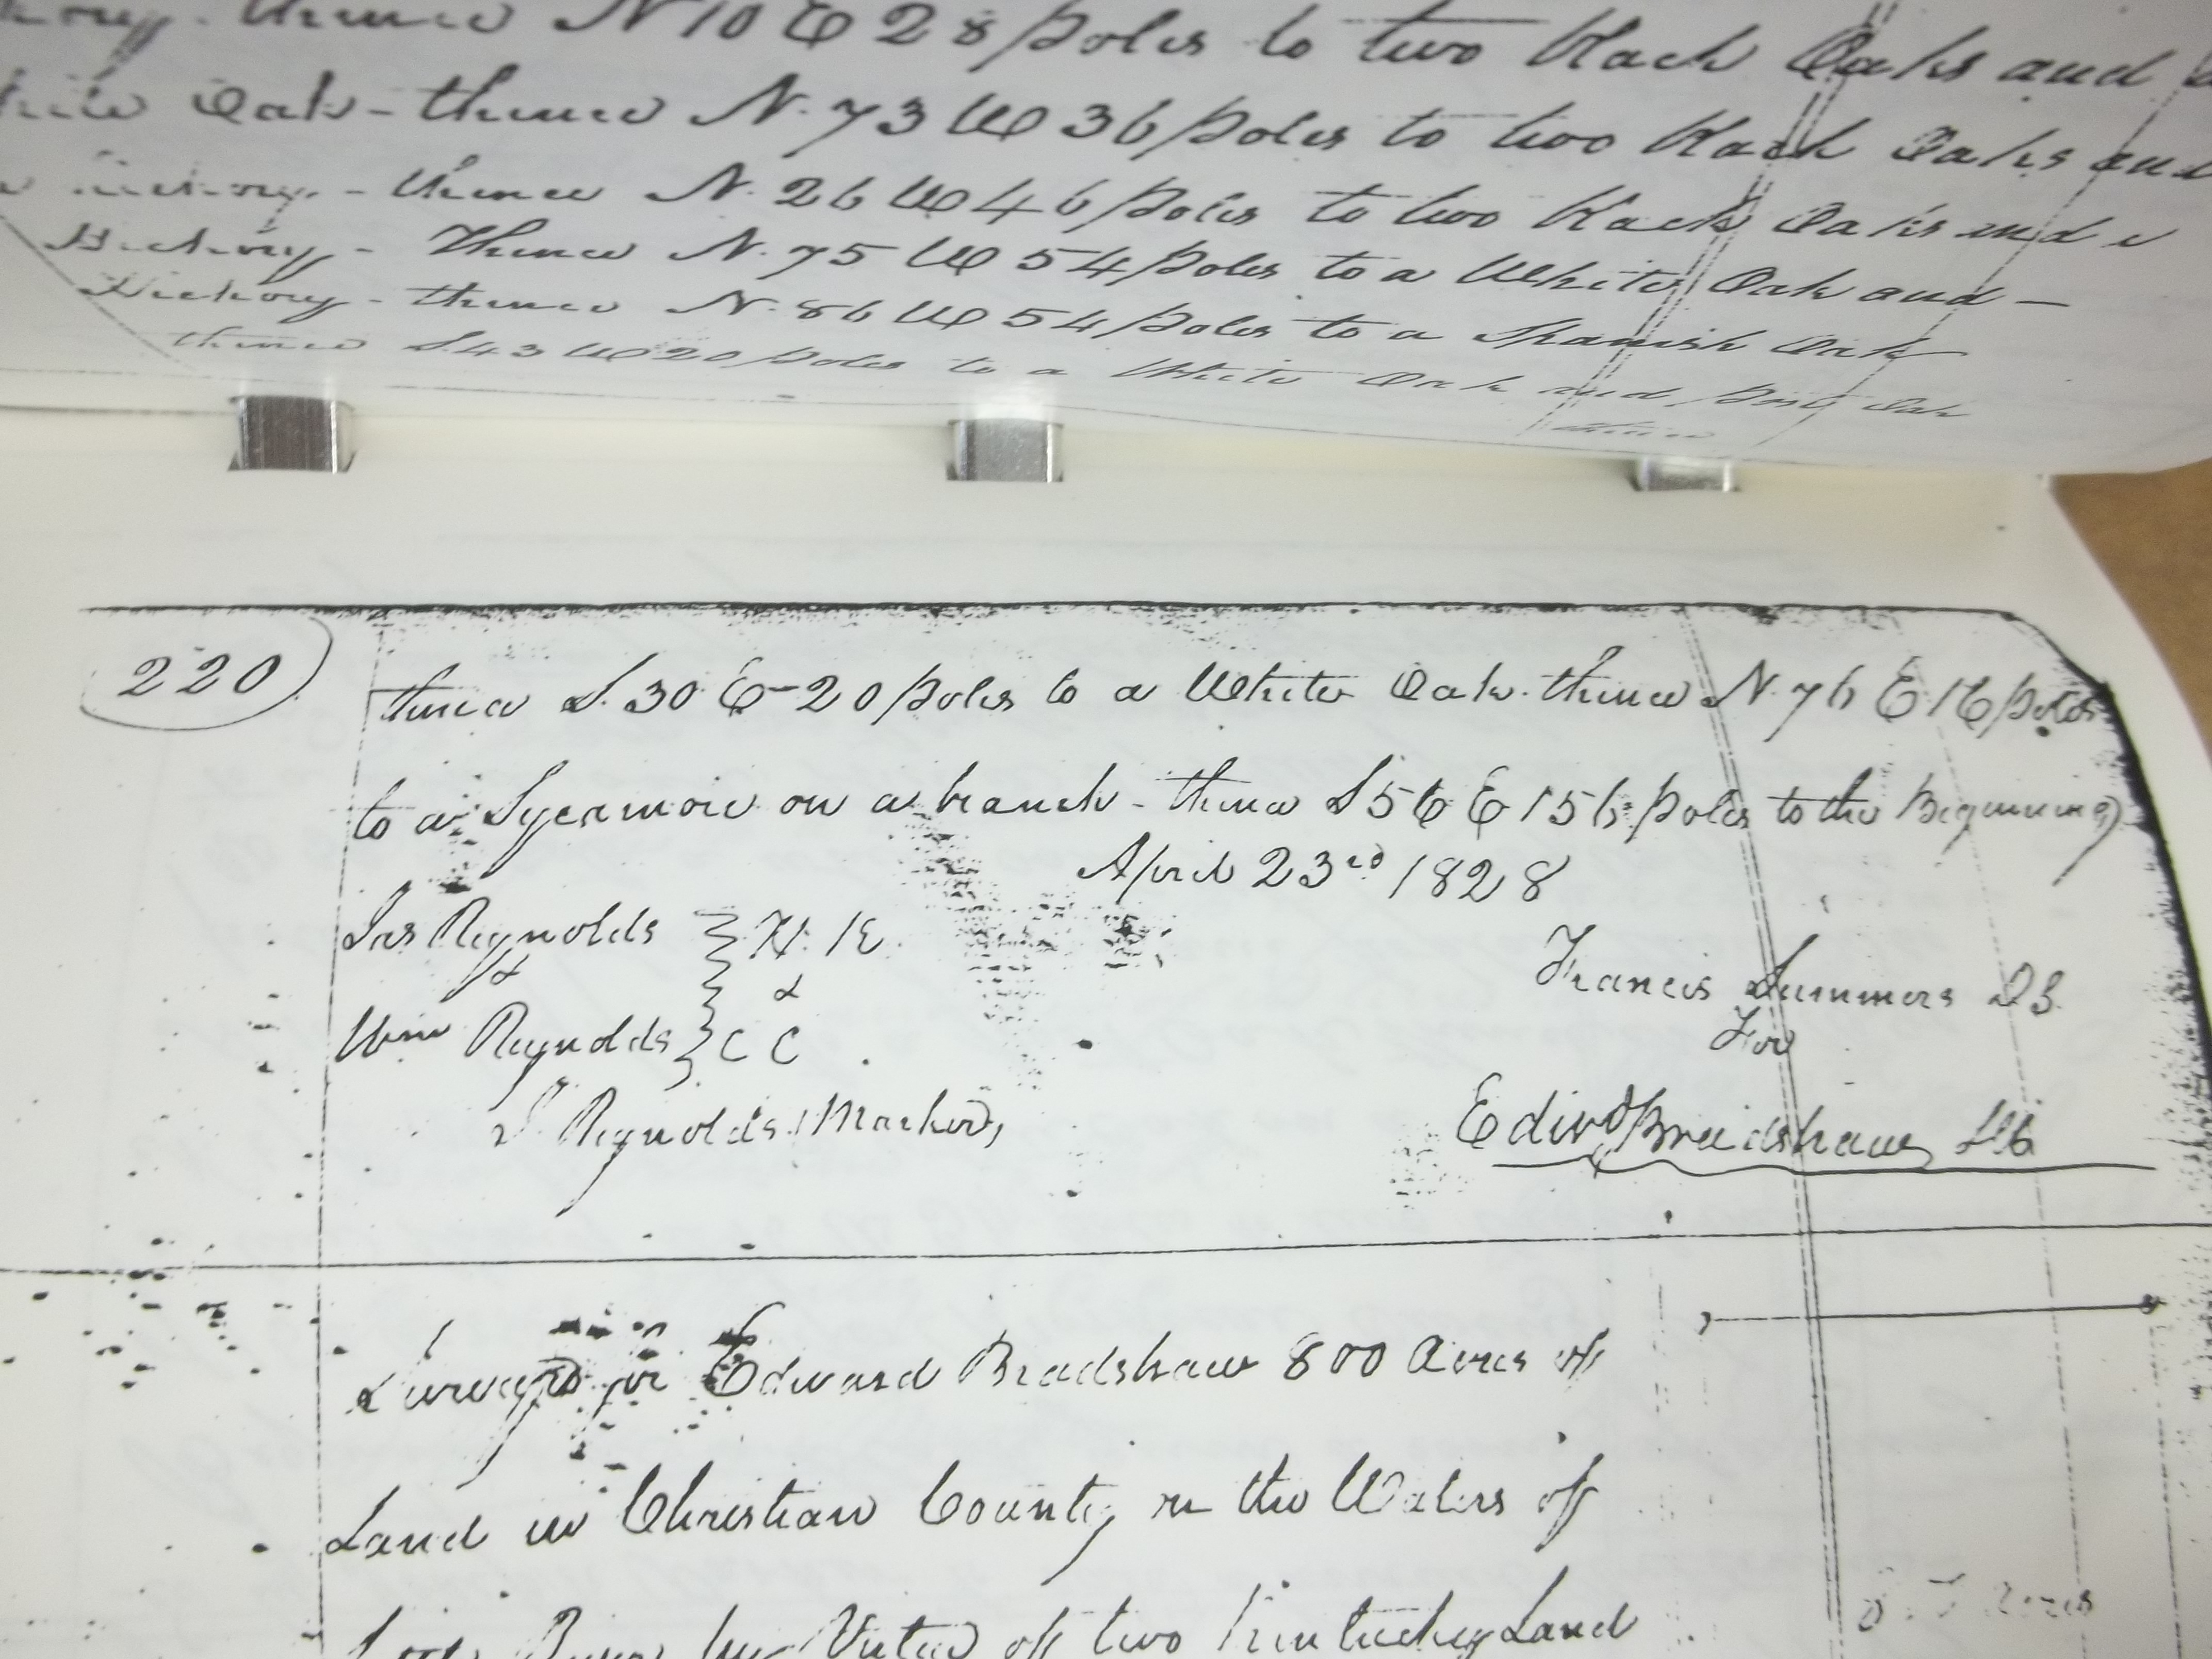 thence N 10 E 28 poles to two black Oaks and
White Oak - thence N. 73 W 36 poles to two black Oaks and
Hickory. - thence N. 26 W 46 poles to two black Oaks and a
Hickory - Thence N. 75 W 54 poles to a White Oak and -
Hickory - thence N. 86 W 54 poles to a Spanish Oak
thence S. 43 W 20 poles to a White Oak and Post Oak
thence
220
thence S. 30 E - 20 poles to a White Oak. thence N. 76 E 16 poles
to a Sycamore on a branch - thence S 56 E 156 poles to the Beginning
April 23rd 1828
Jas Reynolds } H. K.
& &
Wm Reynolds } C C
Reynolds Marker,
Francis Summers DS.
For
Edwd Bradshaw
Surveyd for Edward Bradshaw 800 Acres of
Land in Christian County on the Waters of
River by Virtue of two Kentucky Land
Acres